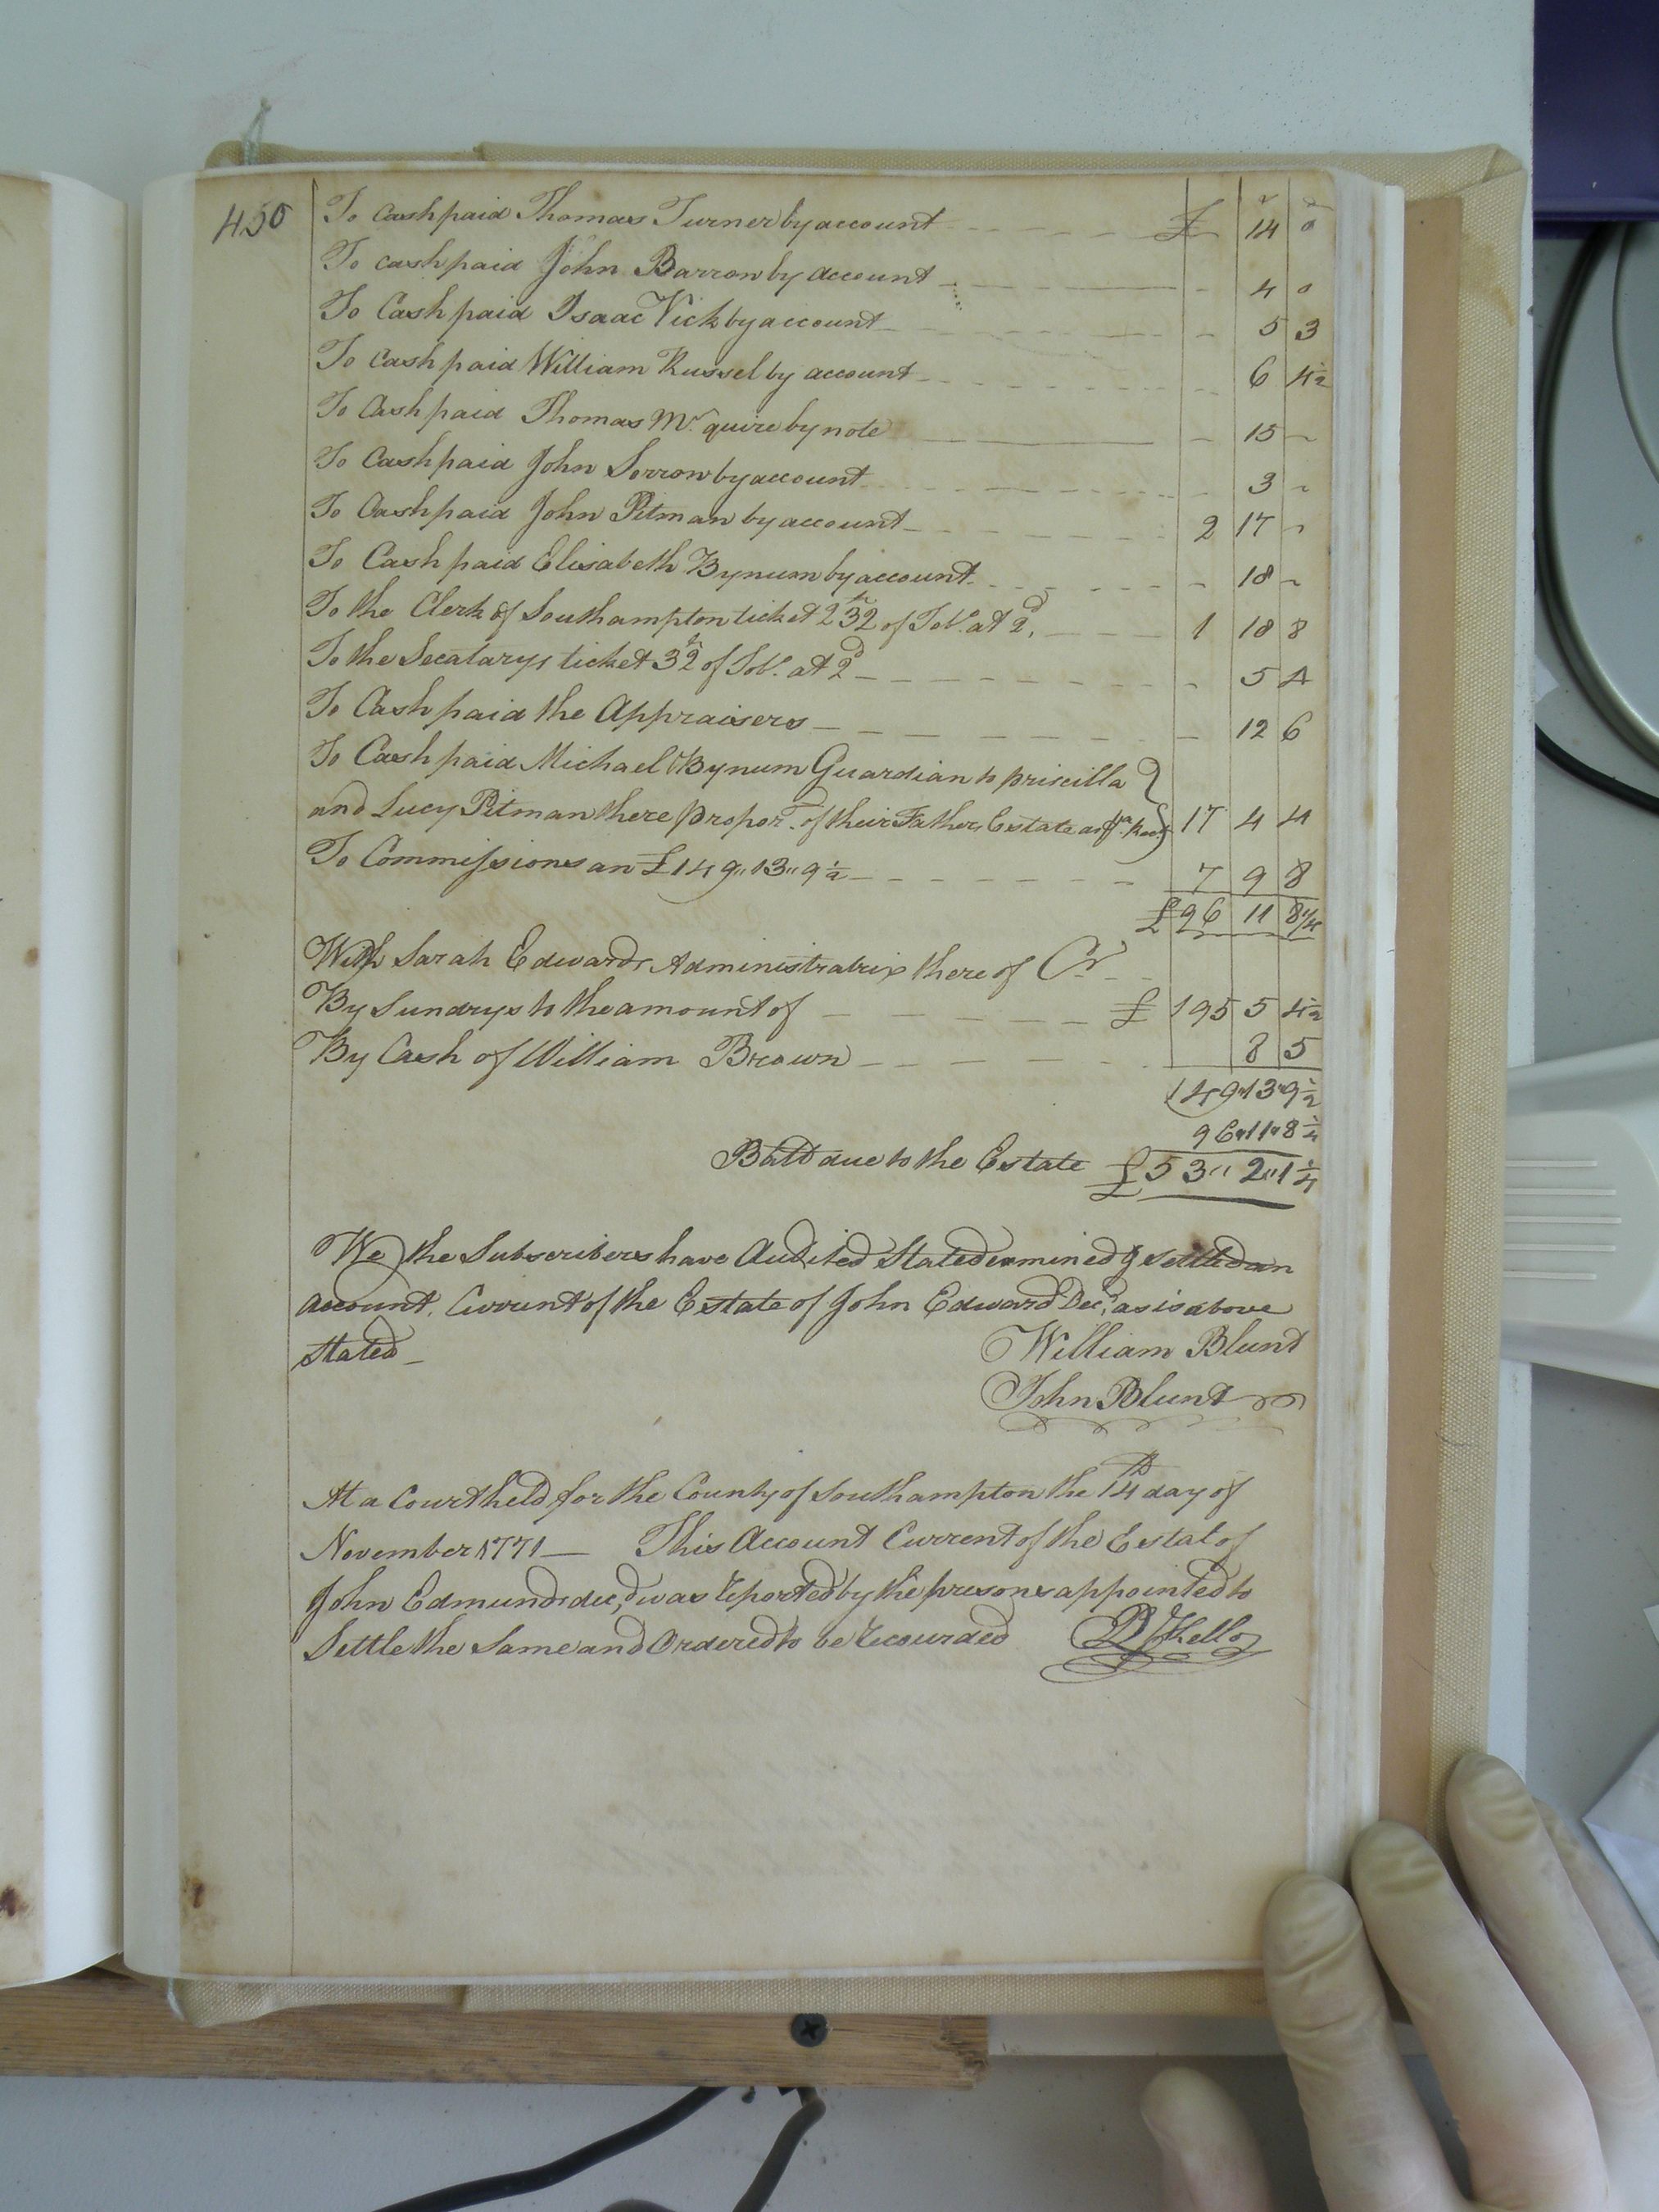 450
To Cash paid Thomas Turner by account £ 14 0
To cash paid John Barrow by account 4 0
To Cash paid Isaac Vick by account 5 3
To Cash paid William Russel by account 6 4½
To Cash paid Thomas Mc. quire by note 15
To Cash paid John Sorrow by account 3
To Cash paid John Pitman by account 2 17
To Cash paid Elisabeth Bynum by account 18
To the Clerk of Southampton ticket 232 of Tob. at 2d. 1 18 8
To the Secatarys ticket 32 of Tob. at 2d 5 4
To Cash paid the Appraisers 12 6
To Cash paid Michael Bynum Guardian to priscilla
and Lucy Pitman there propor. of their Fathers Estate 17 4 4
To Commissions an £149"13"9½ 7 9 8
£96 11 8¼
With Sarah Edwards Administratrix there of Cr
By Sundrys to the amount of £ 195 5 4½
By Cash of William Brown 8 5
149"13"9½
96"11"8¼
Balld due to the Estate £53"2"1¼
We the Subscribers have Audited Stated exmined & settled an
account, Current of the Estate of John Edward Decd. as is above
stated
William Blunt
John Blunt
At a Court held for the County of Southampton the 14th day of
November 1771 This Account Current of the Estat of
John Edmunds dec,d was reported by the presons appointed to
Settle the Same and Ordered to be recourded R Kello